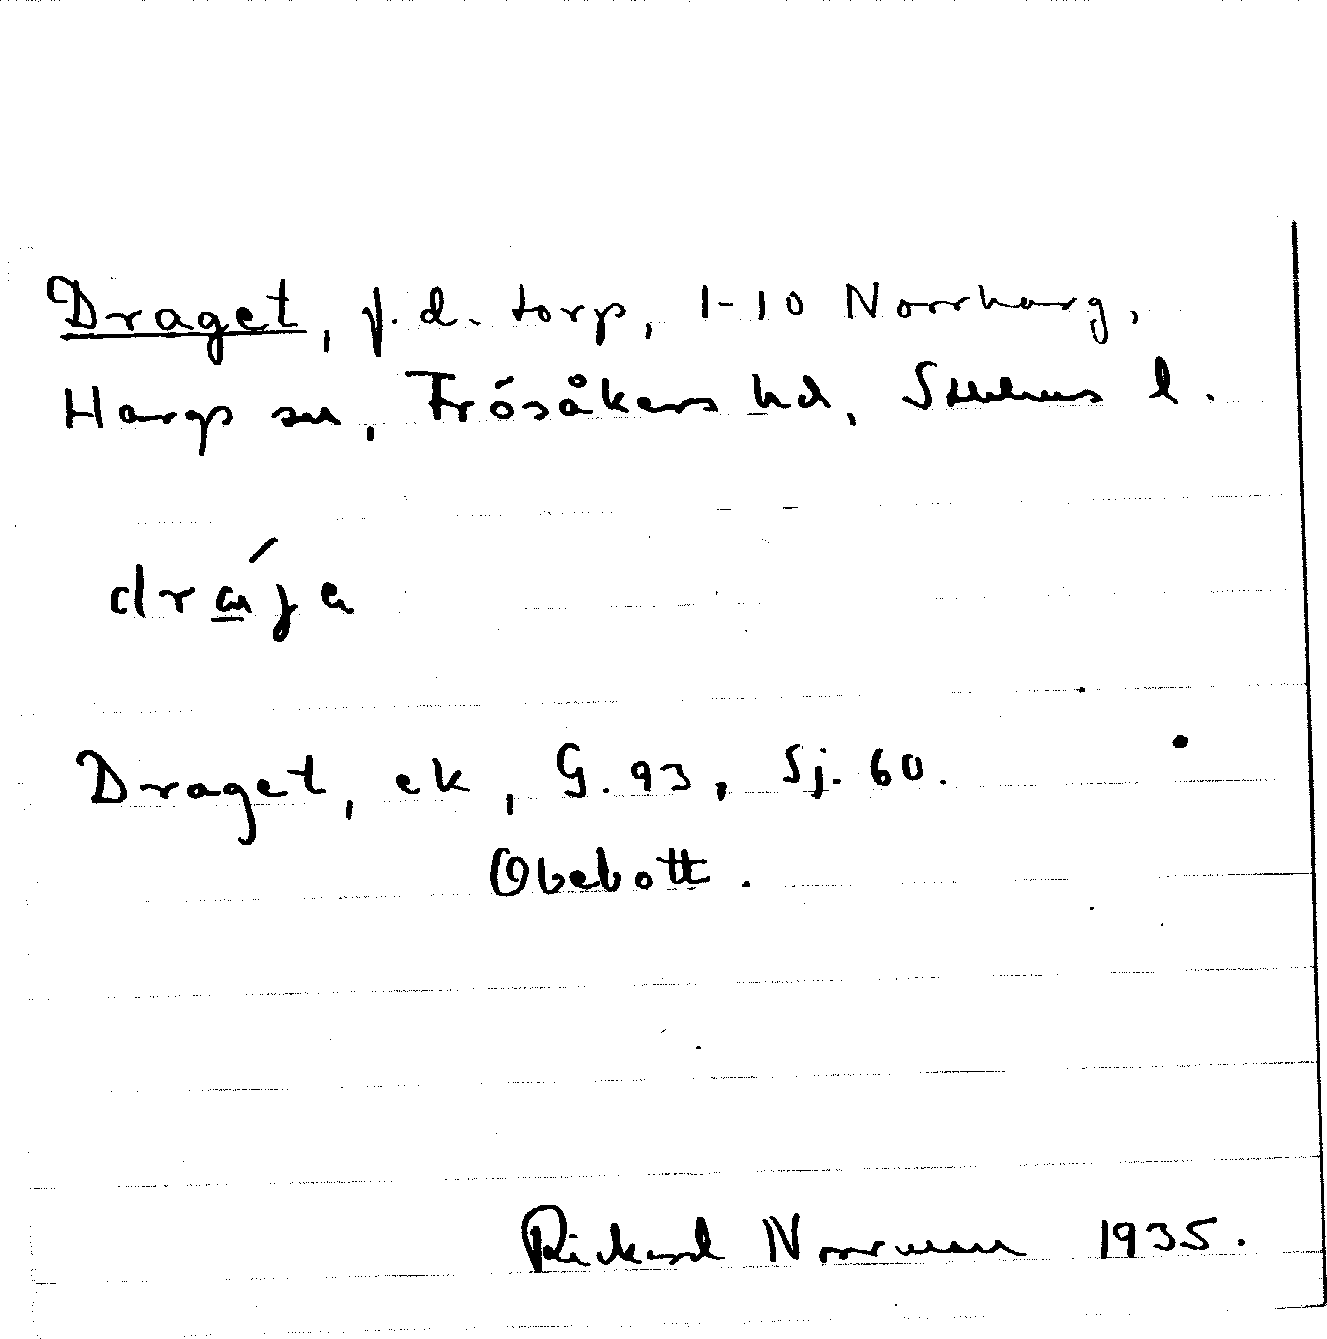 Draget, f.d. torp, 1-10 Norrharg,
Hargs sn, Frösåkers hd, Sthlms l.
drája
Draget, ek, G. 93, Sj. 60.
Obebott.
Rickard Norrman 1935.